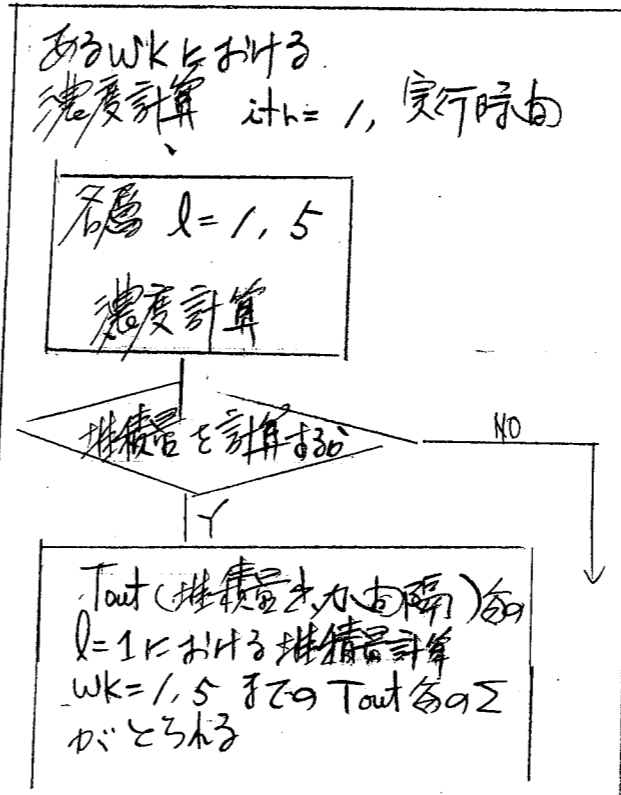 あるwkにおける
濃度計算 ith= 1, 実行時間
各層 l=1, 5
濃度計算
堆積量を計算するか
NO
Y
Tout(堆積量出力間隔)毎の
l=1における堆積量計算
wk=1, 5 までのTout毎のΣ
がとられる